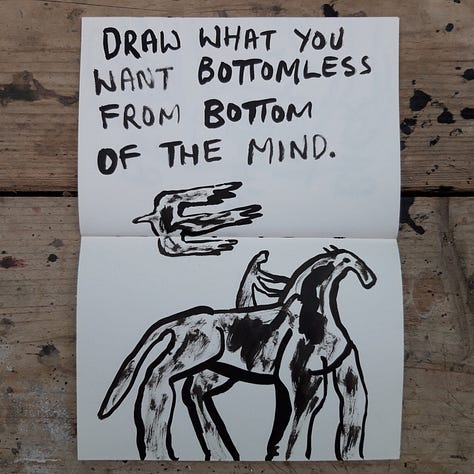 DRAW WHAT YOU
WANT BOTTOMLESS
FROM BOTTOM
OF THE MIND.